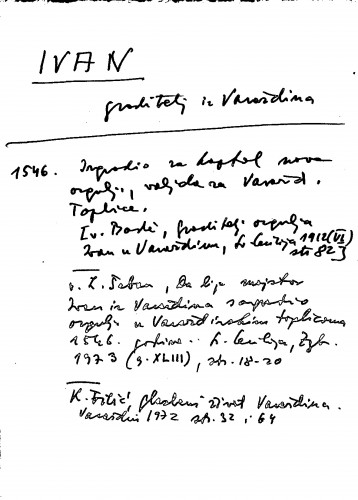 IVAN
graditelj iz Varaždina
1546. Izgradio za kaptol nove
orgulje, valjda za Varažd.
Toplice.
Iv. Barlè, graditelj orgulja
Ivan u Varaždinu, Sv. Cecilija 1912 (VI)
str 82
v. L. Šaban, Da li je majstor
Ivan iz Varaždina sagradio
orgulje u Varaždinskim toplicama
1546. godine.. Sv. Cecilija, Zgb.
1973 (g. XLIII), str. 18-20
K. Filić, Glazbeni život Varaždina.
Varaždin 1972 str. 32 i 64